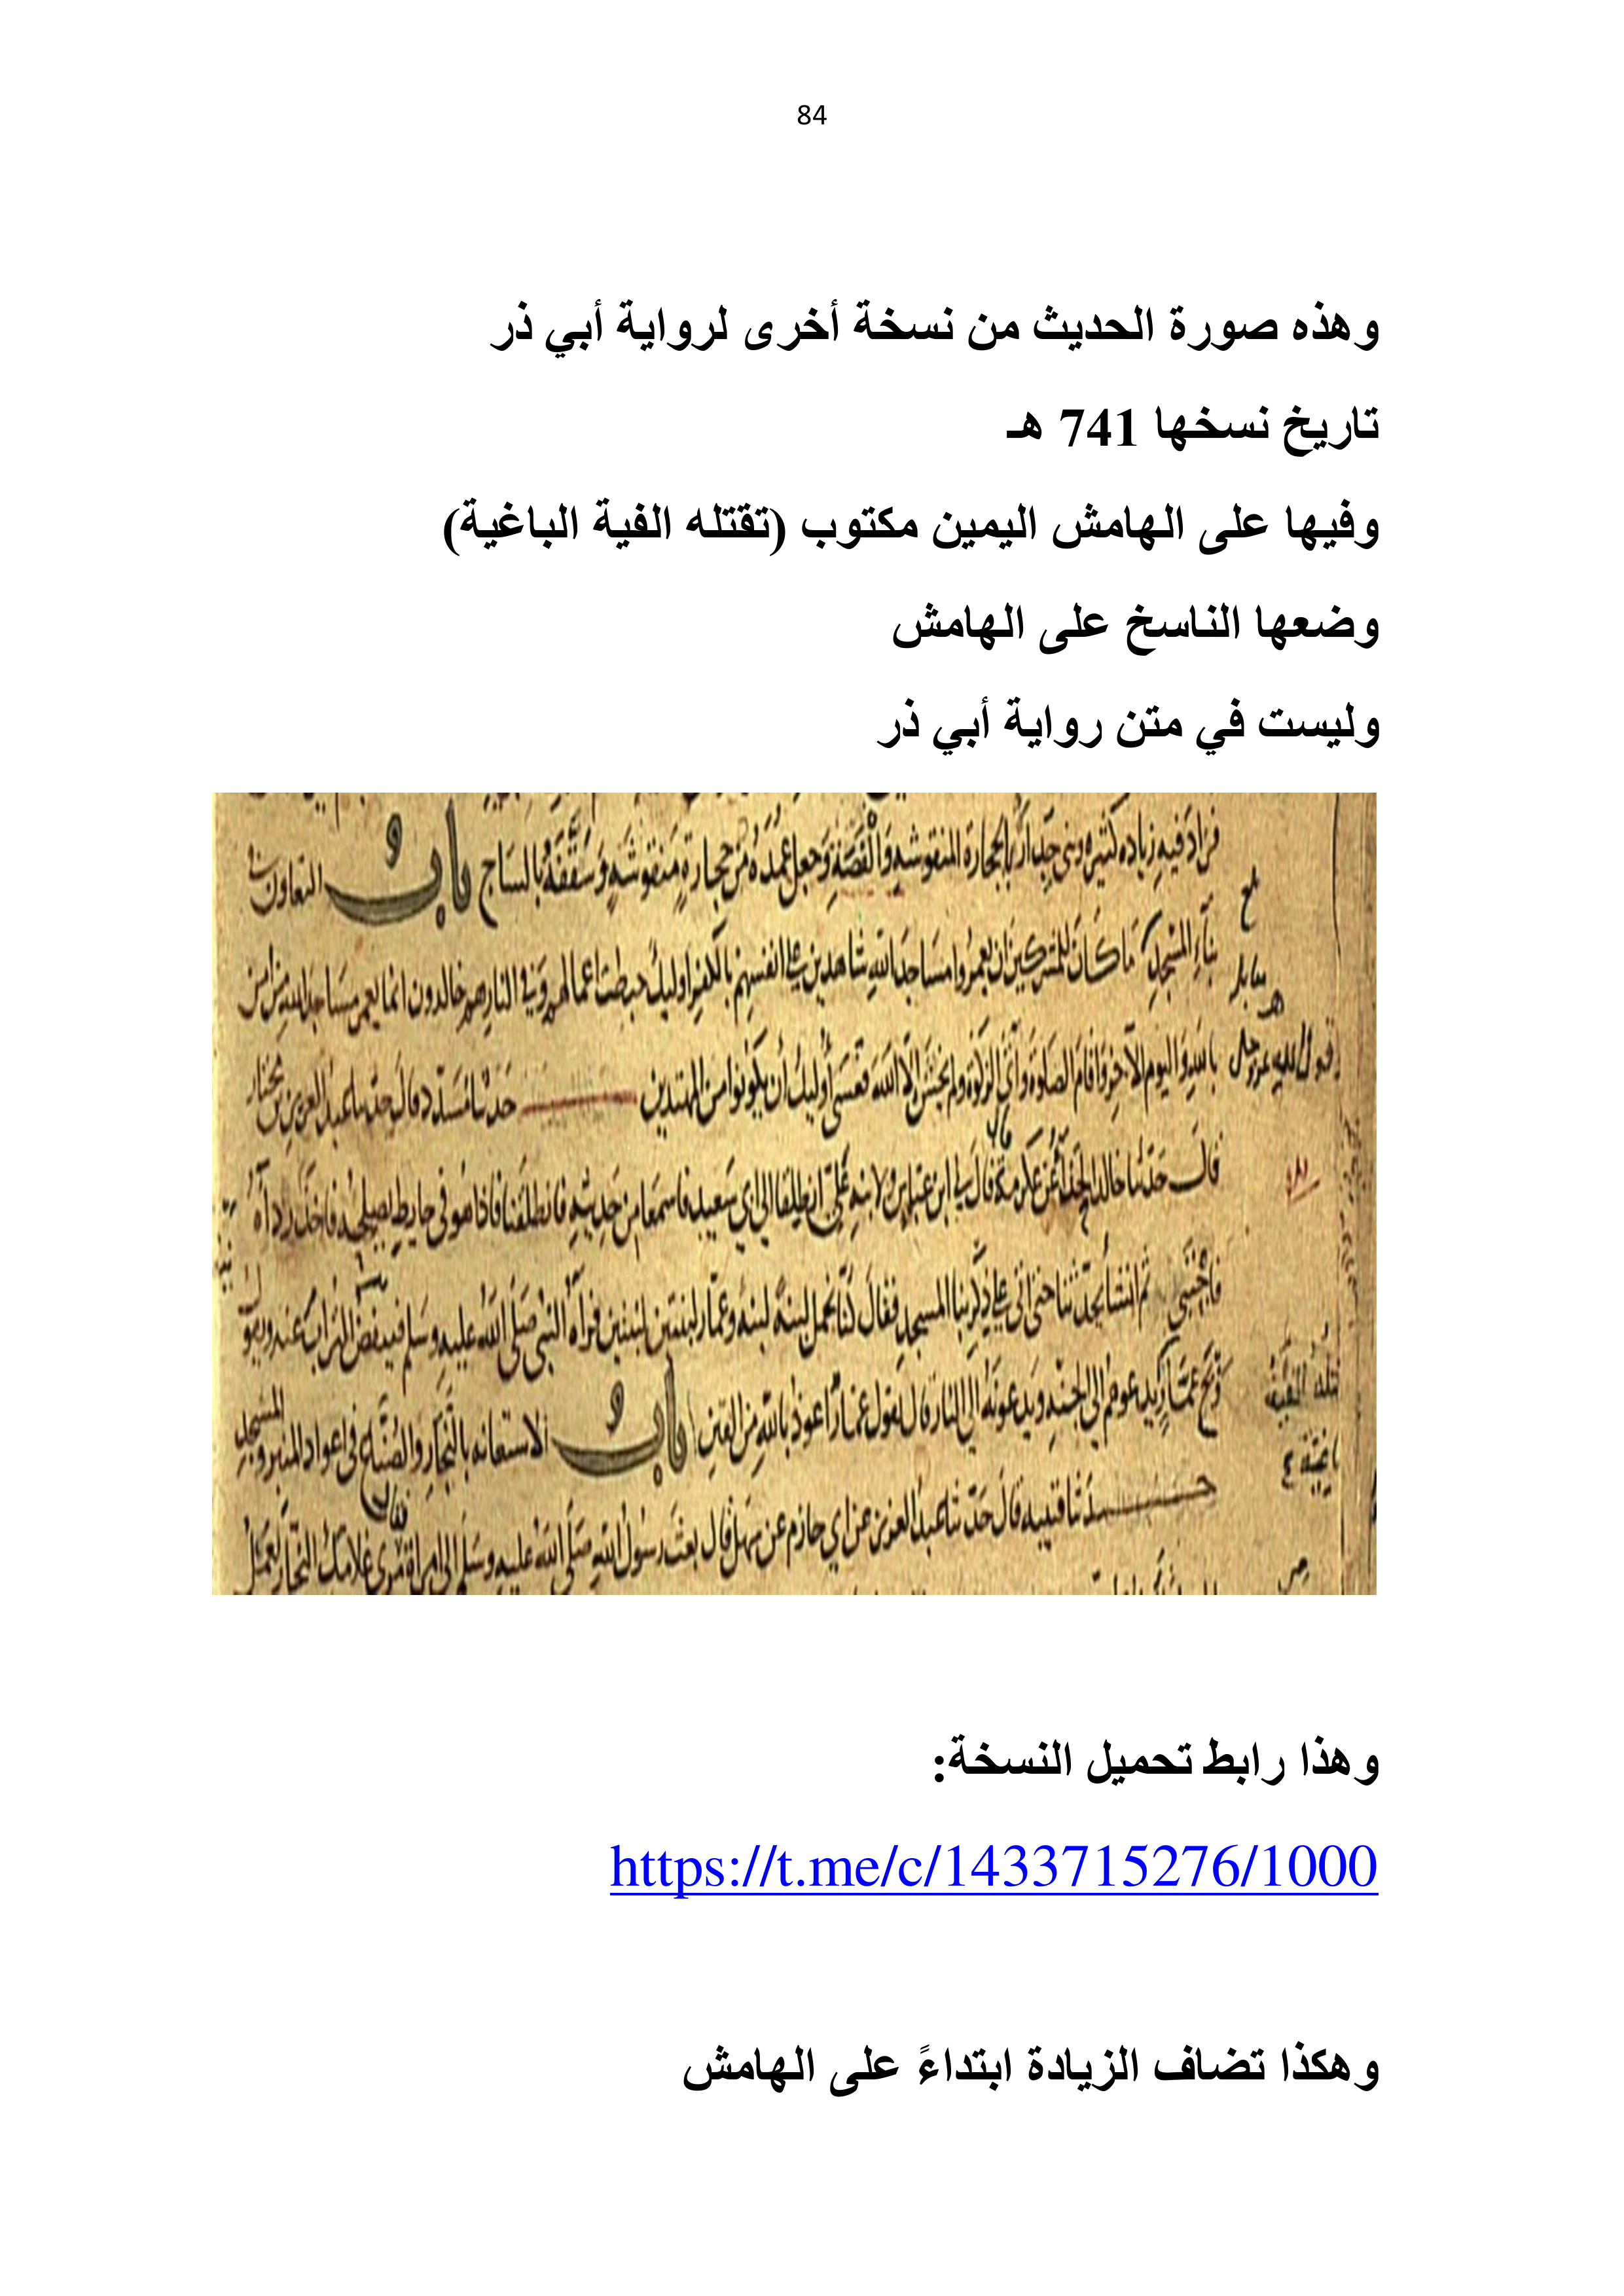 84
وهذه صورة الحديث من نسخة أخرى لرواية أبي ذر
تاريخ نسخها 741 هـ
وفيها على الهامش اليمين مكتوب (تقتله الفية الباغية)
وضعها الناسخ على الهامش
وليست في متن رواية أبي ذر
فزاد فيه زياده كثيره وبنى جداره بالحجارة المنقوشه والقصة وجعل عمده من حجارة منقوشه وسقفه بالساج باب التعاون في
بناء المسجد ما كان للمشركين ان يعمروا مساجد الله شاهدين على انفسهم بالكفر اوليك حبطت اعمالهم وفي النار هم خالدون انما يعمر مساجد الله من امن
قول الله عز وجل بالله واليوم الآخر واقام الصلوة وآتى الزكوة ولم يخش إلا الله فعسى أوليك أن يكونوا من المهتدين حدثنا مسدد قال حدثنا عبد العزيز بن مختار
قال حدثنا خالد الحذاء عن عكرمة قال لي ابن عباس ولابنه على انطلقا الى ابي سعيد فاسمعا من حديثه فانطلقنا فاذا هو في حايط يصلحه فاخذ رداءه
فاحتبى ثم انشا يحدثنا حتى اتى على ذكر بنا المسجد فقال كنا نحمل لبنة لبنة وعمار لبنتين لبنتين فرآه النبي صلى الله عليه وسلم فينفض التراب عنه ويقول
ويح عمار يدعوهم الى الجنه ويدعونه الى النار قال يقول عمار اعوذ بالله من الفتن باب الاستعانه بالنجار والصناع في اعواد المنبر والمسجد
حدثنا قتيبه قال حدثنا عبد العزيز عن ابي حازم عن سهل قال بعث رسول الله صلى الله عليه وسلم الى امراة مري غلامك النجار يعمل
وهذا رابط تحميل النسخة:
https://t.me/c/1433715276/1000
وهكذا تضاف الزيادة ابتداءً على الهامش